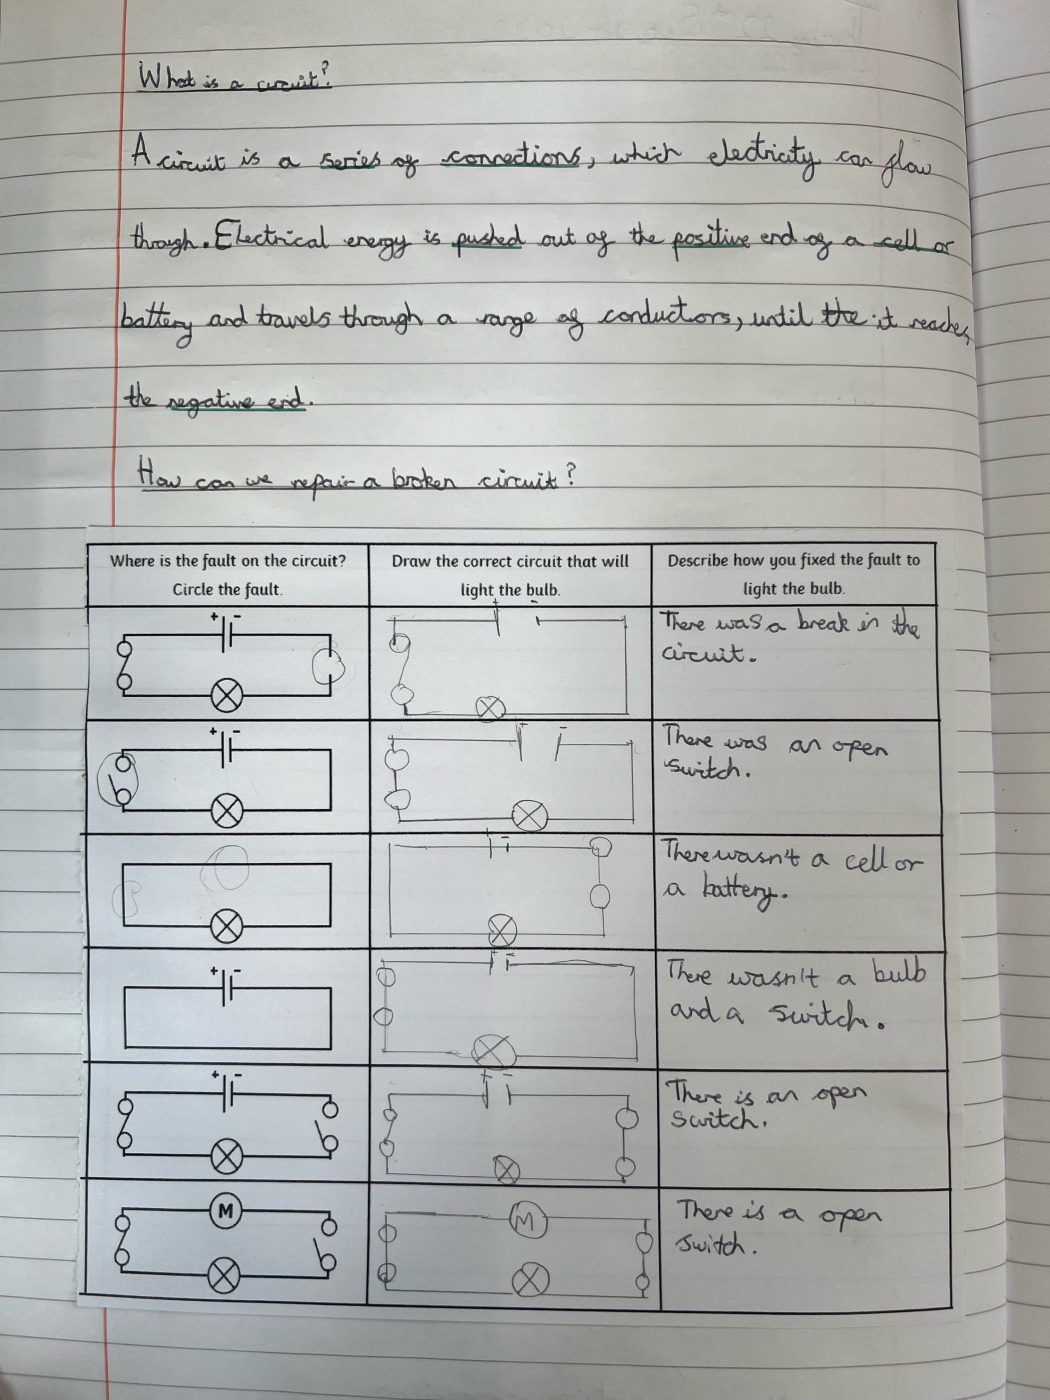 What is a circuit?
A circuit is a series of connections, which electricity can flow
through. Electrical energy is pushed out of the positive end of a cell or
battery and travels through a range of conductors, until the it reaches
the negative end.
How can we repair a broken circuit?
Where is the fault on the circuit?
Circle the fault.
Draw the correct circuit that will
light the bulb.
Describe how you fixed the fault to
light the bulb.
+ -
+ -
There was a break in the
circuit.
+ -
+ -
There was an open
switch.
+ -
There wasn't a cell or
a battery.
+ -
+ -
There wasn't a bulb
and a switch.
+ -
+ -
There is an open
switch.
M
M
There is a open
switch.